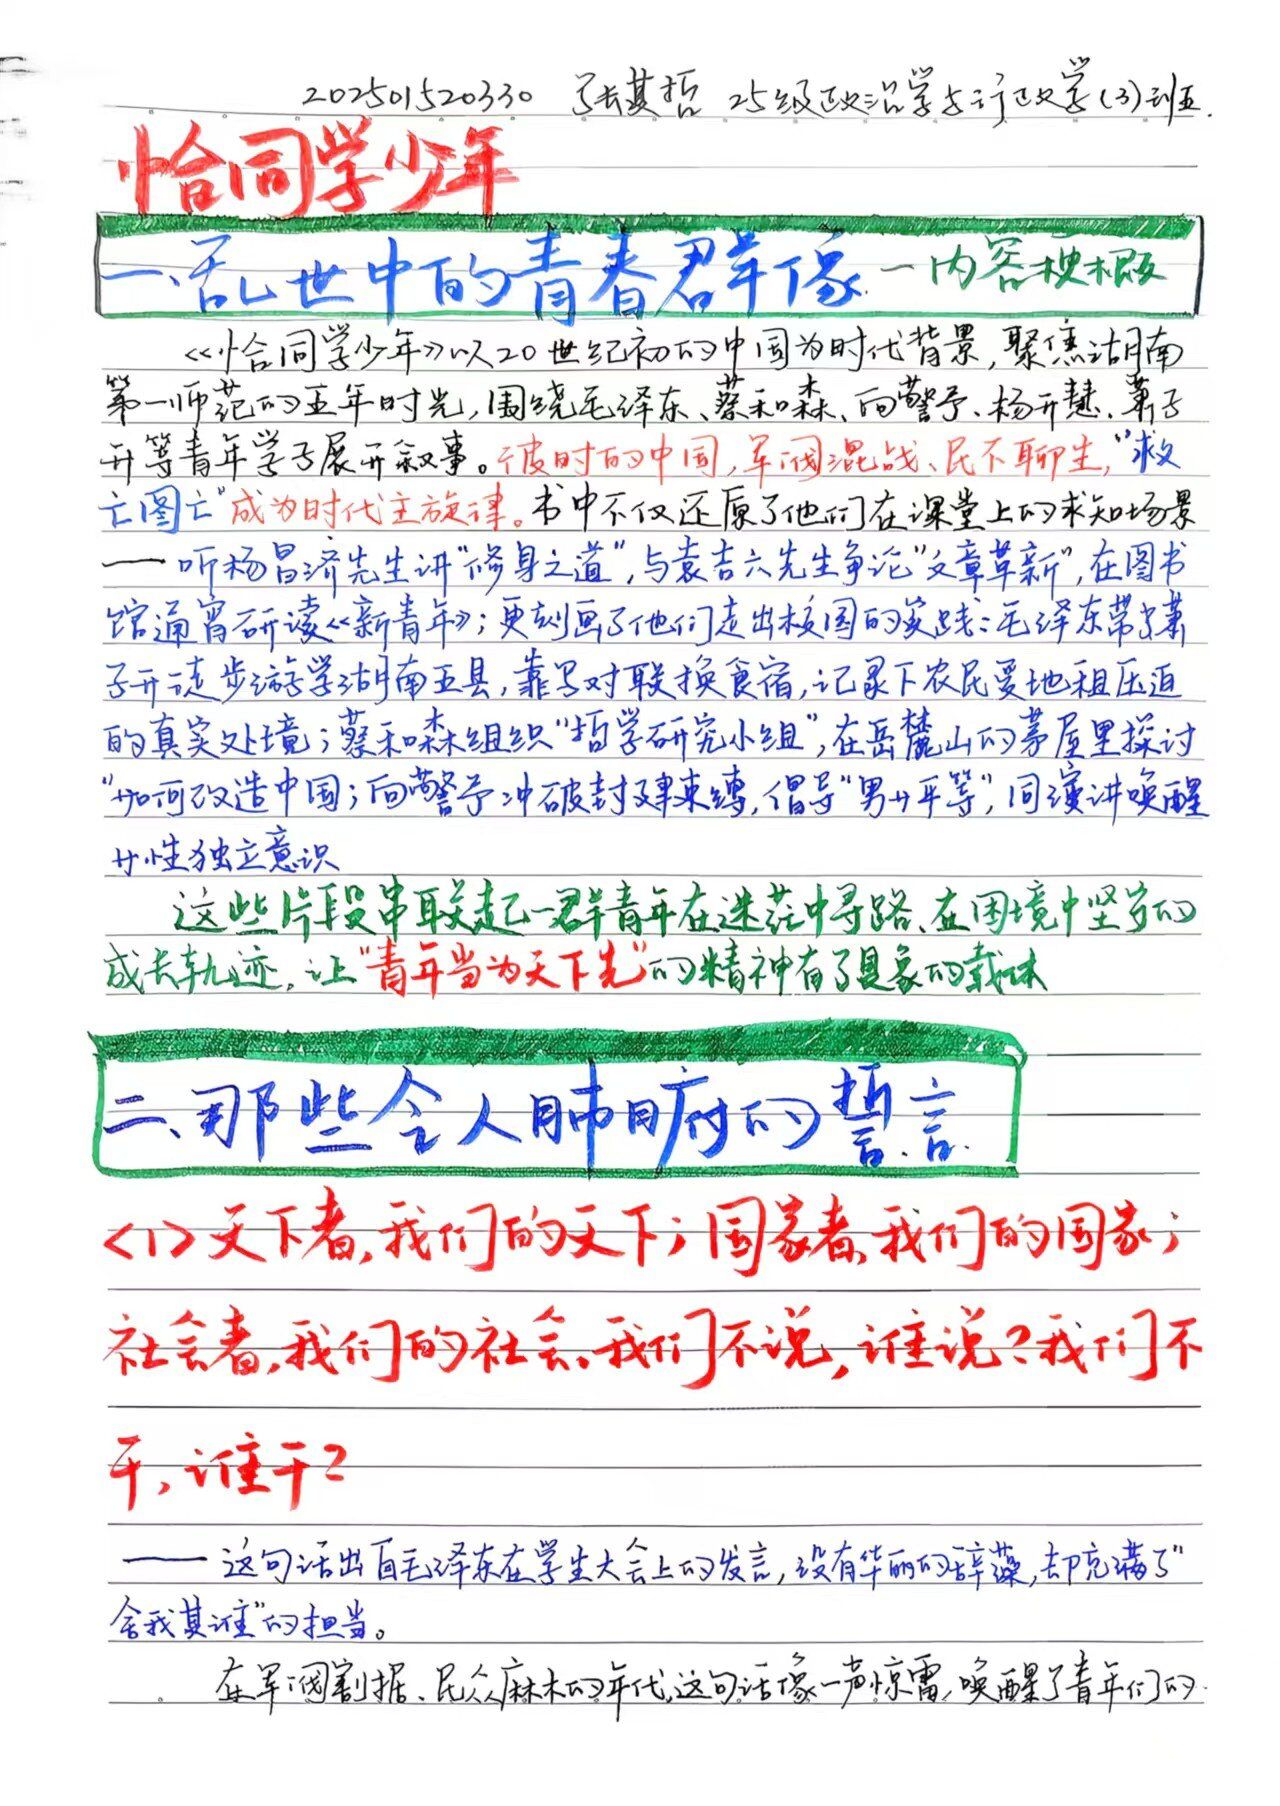 202501520330 张其哲 25级政治学与行政学(3)班
恰同学少年
一、乱世中的青春群像 — 内容梗概
《恰同学少年》以20世纪初的中国为时代背景，聚焦湖南
第一师范的五年时光，围绕毛泽东、蔡和森、向警予、杨开慧、萧子
升等青年学子展开叙事。彼时的中国，军阀混战、民不聊生，"救
亡图亡"成为时代主旋律。书中不仅还原了他们在课堂上的求知场景
——听杨昌济先生讲"修身之道"，与袁吉六先生争论"文章革新"，在图书
馆通宵研读《新青年》；更刻画了他们走出校园的实践：毛泽东带萧
子升徒步游学湖南五县，靠写对联换食宿，记录下农民受地租压迫
的真实处境；蔡和森组织"哲学研究小组"，在岳麓山的茅屋里探讨
"如何改造中国；向警予冲破封建束缚，倡导"男女平等"，同演讲唤醒
女性独立意识
这些片段串联起一群青年在迷茫中寻路、在困境中坚守的
成长轨迹，让"青年当为天下先"的精神有了具象的载体
二、那些令人肺腑的誓言
<1>天下者，我们的天下；国家者，我们的国家；
社会者，我们的社会。我们不说，谁说？我们不
干，谁干？
——这句话出自毛泽东在学生大会上的发言，没有华丽的辞藻，却充满了"
舍我其谁"的担当。
在军阀割据、民众麻木的年代，这句话像一声惊雷，唤醒了青年们的